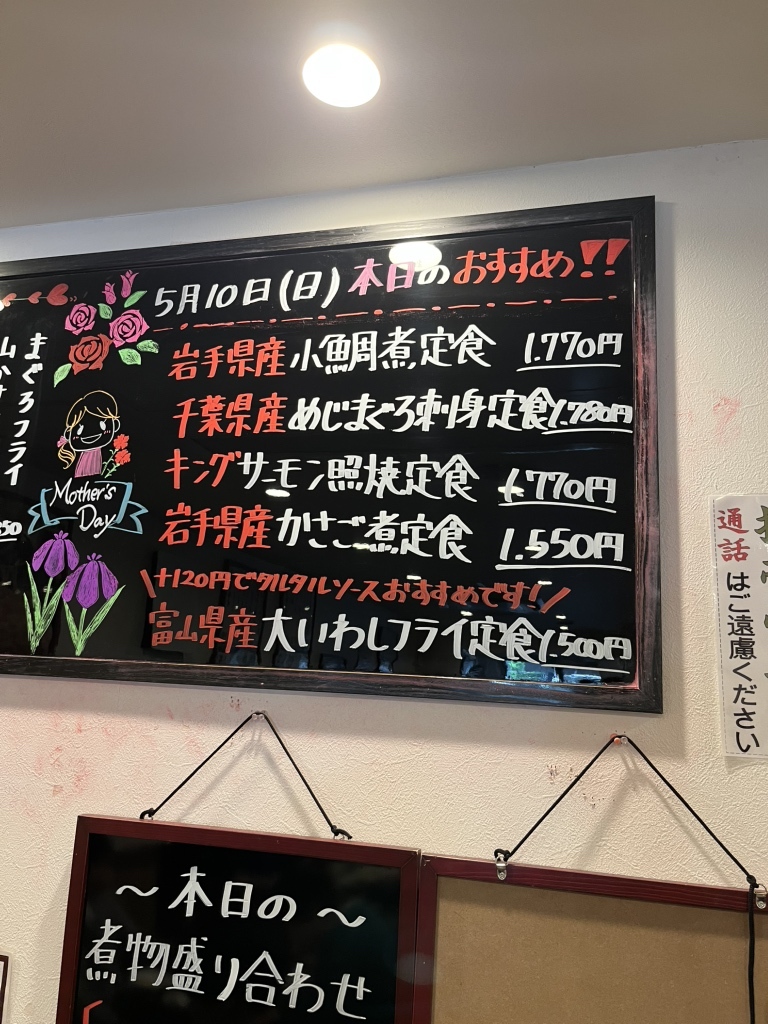 5月10日(日) 本日のおすすめ!!
岩手県産 小鯛煮定食 1.770円
千葉県産 めじまぐろ刺身定食 1.780円
キングサーモン照焼定食 1.770円
岩手県産 かさご煮定食 1.550円
\+120円でタルタルソースおすすめです!/
富山県産 大いわしフライ定食 1.500円
まぐろフライ
山か
Mother's
Day
通話
はご遠慮ください
～本日の～
煮物盛り合わせ